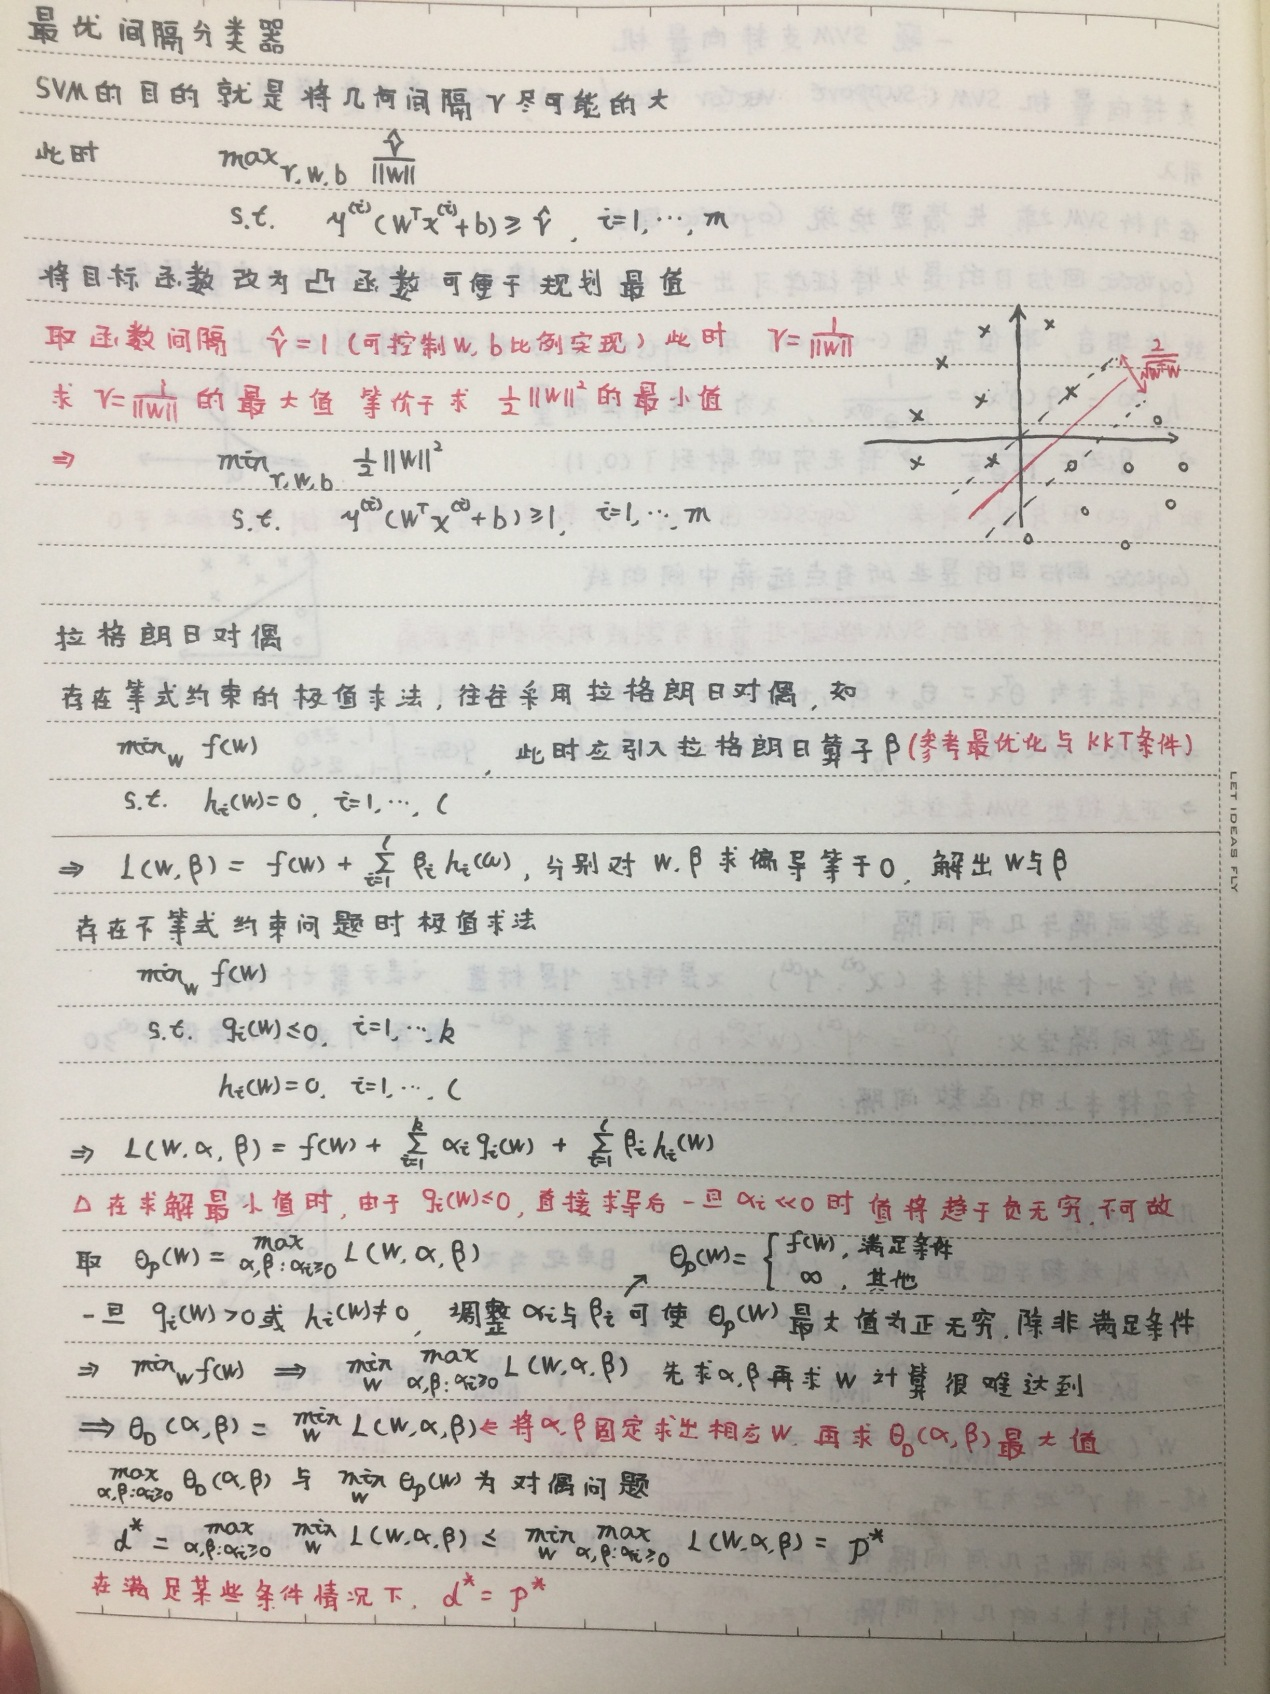 最优间隔分类器
SVM的目的就是将几何间隔γ尽可能的大
此时 max_{γ,w,b} \hat{γ}/||w||
s.t. y^{(i)}(w^T x^{(i)}+b) ≥ \hat{γ}, i=1,…,m
将目标函数改为凸函数可便于规划最值
取函数间隔 \hat{γ}=1 (可控制w,b比例实现) 此时 γ=1/||w||
2/√(w·w)
求 γ=1/||w|| 的最大值 等价于求 ½||w||² 的最小值
⇒ min_{γ,w,b} ½||w||²
s.t. y^{(i)}(w^T x^{(i)}+b) ≥1, i=1,…,m
拉格朗日对偶
存在等式约束的极值求法,往往采用拉格朗日对偶,如
min_w f(w) , 此时应引入拉格朗日算子β(参考最优化与KKT条件)
s.t. h_i(w)=0, i=1,…,l
⇒ L(w,β) = f(w) + Σ_{i=1}^{l} β_i h_i(ω), 分别对w,β求偏导等于0, 解出w与β
存在不等式约束问题时极值求法
min_w f(w)
s.t. g_i(w)≤0, i=1,…,k
h_i(w)=0, i=1,…,l
⇒ L(w,α,β) = f(w) + Σ_{i=1}^{k} α_i g_i(w) + Σ_{i=1}^{l} β_i h_i(w)
△在求解最小值时,由于g_i(w)≤0,直接求导后一旦α_i≪0时值将趋于负无穷,不可故
取 θ_p(w) = max_{α,β:α_i≥0} L(w,α,β) ↗ θ_p(w)= { f(w), 满足条件
∞, 其他
一旦 g_i(w)>0或h_i(w)≠0, 调整α_i与β_i可使θ_p(w)最大值为正无穷,除非满足条件
⇒ min_w f(w) ⇒ min_w max_{α,β:α_i≥0} L(w,α,β) 先求α,β再求w计算很难达到
⇒ θ_D(α,β) = min_w L(w,α,β) ← 将α,β固定求出相应w 再求θ_D(α,β)最大值
max_{α,β:α_i≥0} θ_D(α,β) 与 min_w θ_p(w) 为对偶问题
d* = max_{α,β:α_i≥0} min_w L(w,α,β) ≤ min_w max_{α,β:α_i≥0} L(w,α,β) = p*
在满足某些条件情况下, d*=p*
LET IDEAS FLY